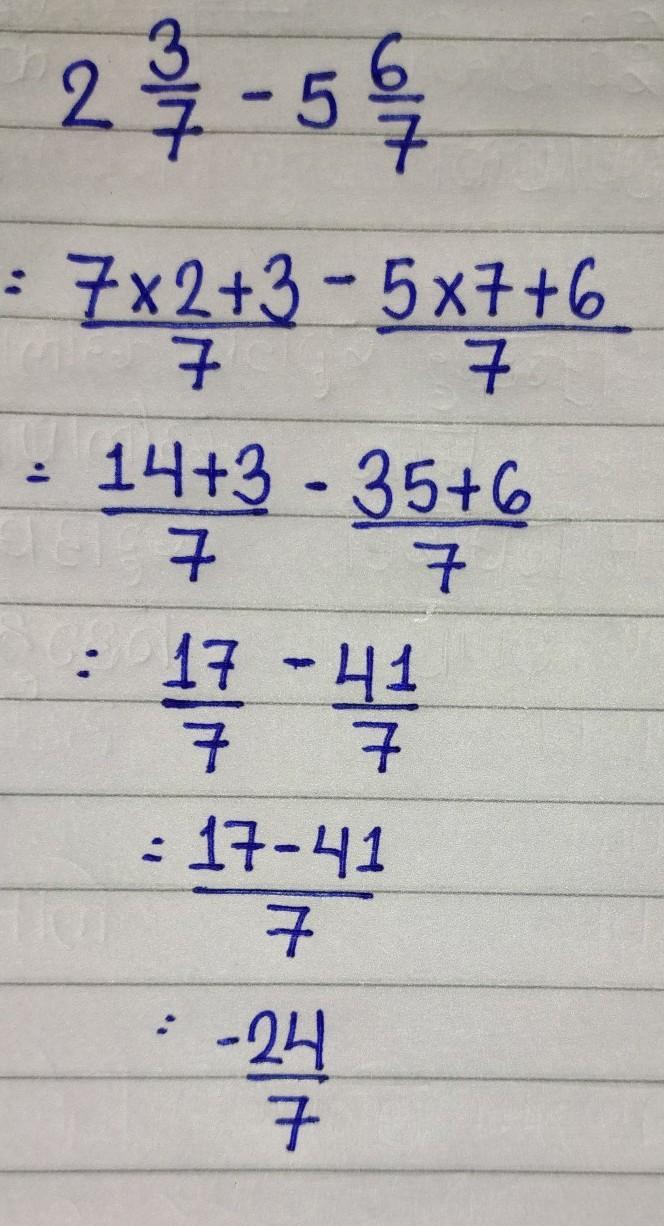 2 3/7 - 5 6/7
= 7×2+3/7 - 5×7+6/7
= 14+3/7 - 35+6/7
= 17/7 - 41/7
= 17-41/7
= -24/7